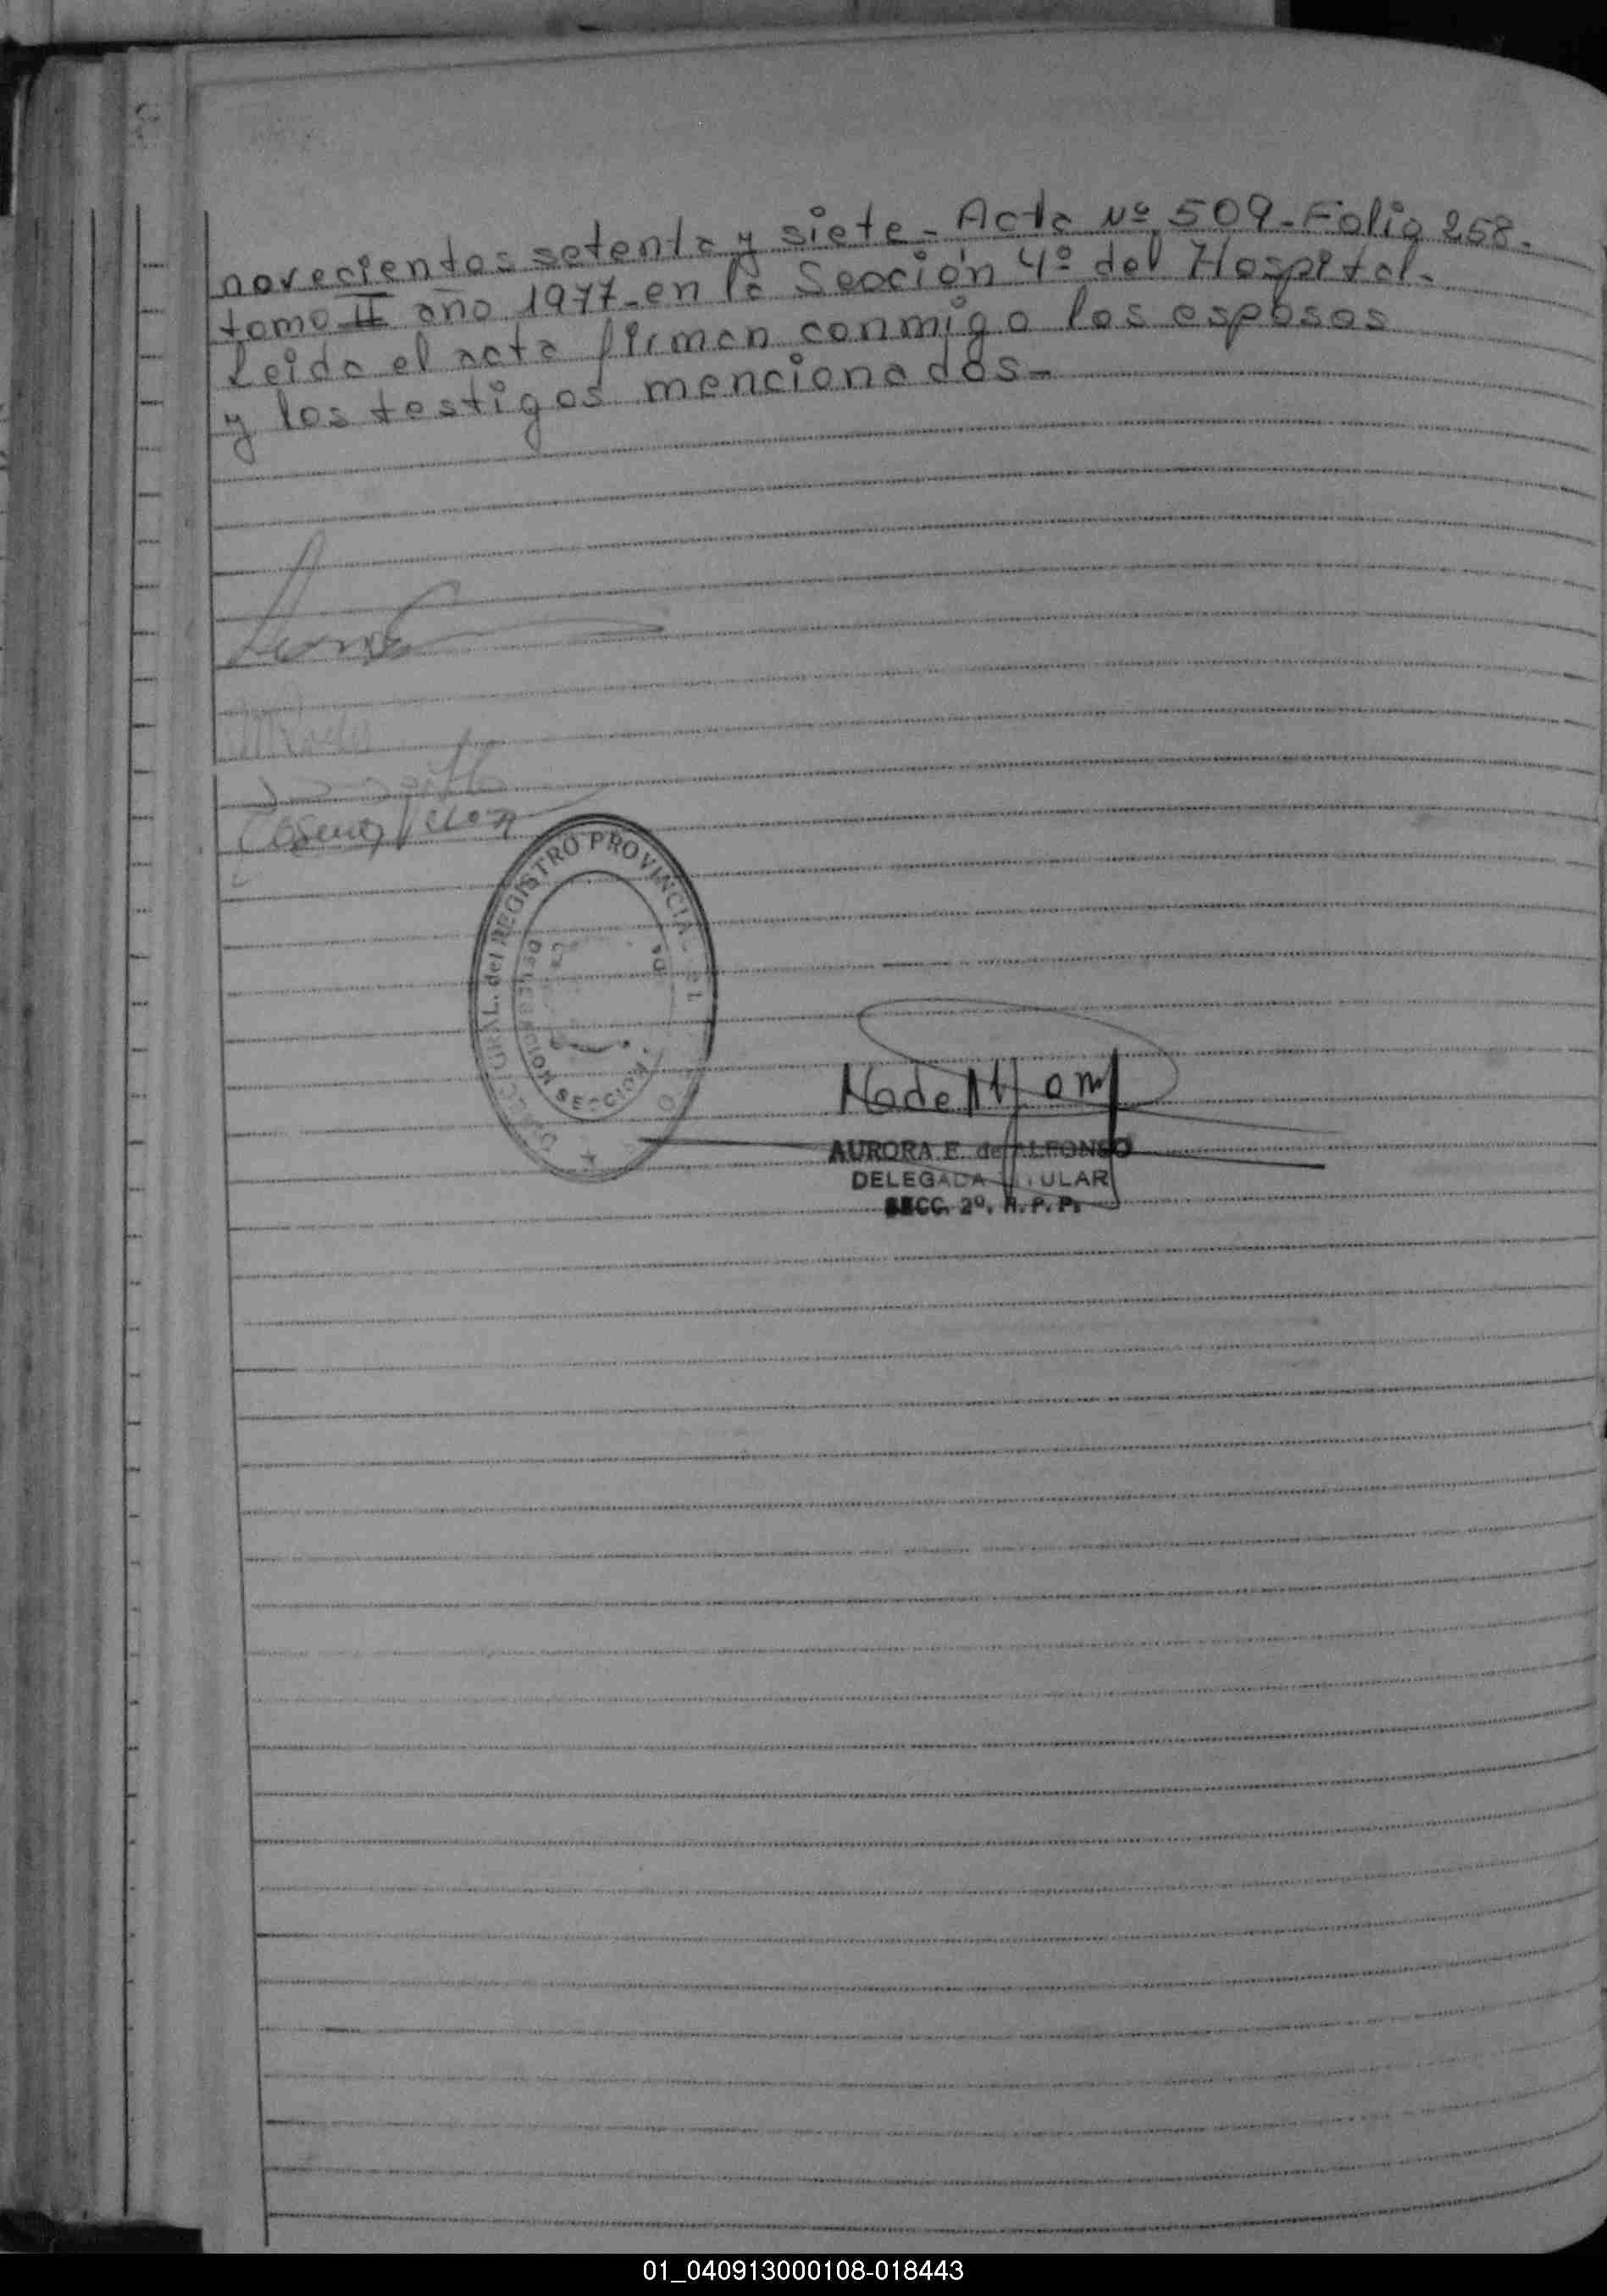 novecientos setenta y siete - Acta Nº 509 - Folio 258 -
tomo II año 1977 - en la Sección 4º del Hospital -
Leida el acta firman conmigo los esposos
y los testigos mencionados -
SECCIONAL del REGISTRO PROVINCIAL
SECCION
AURORA E. de ALFONSO
DELEGADA TITULAR
SECC. 2º. R. P. P.
01_040913000108-018443